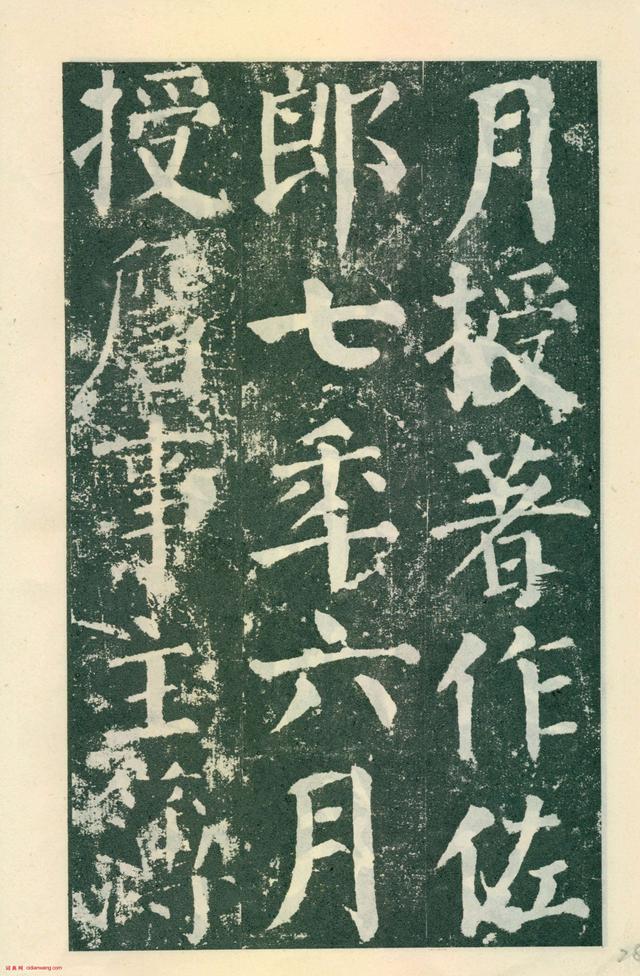 月授著作佐
郎七秊六月
授詹事主簿
词典网: cidianwang.com